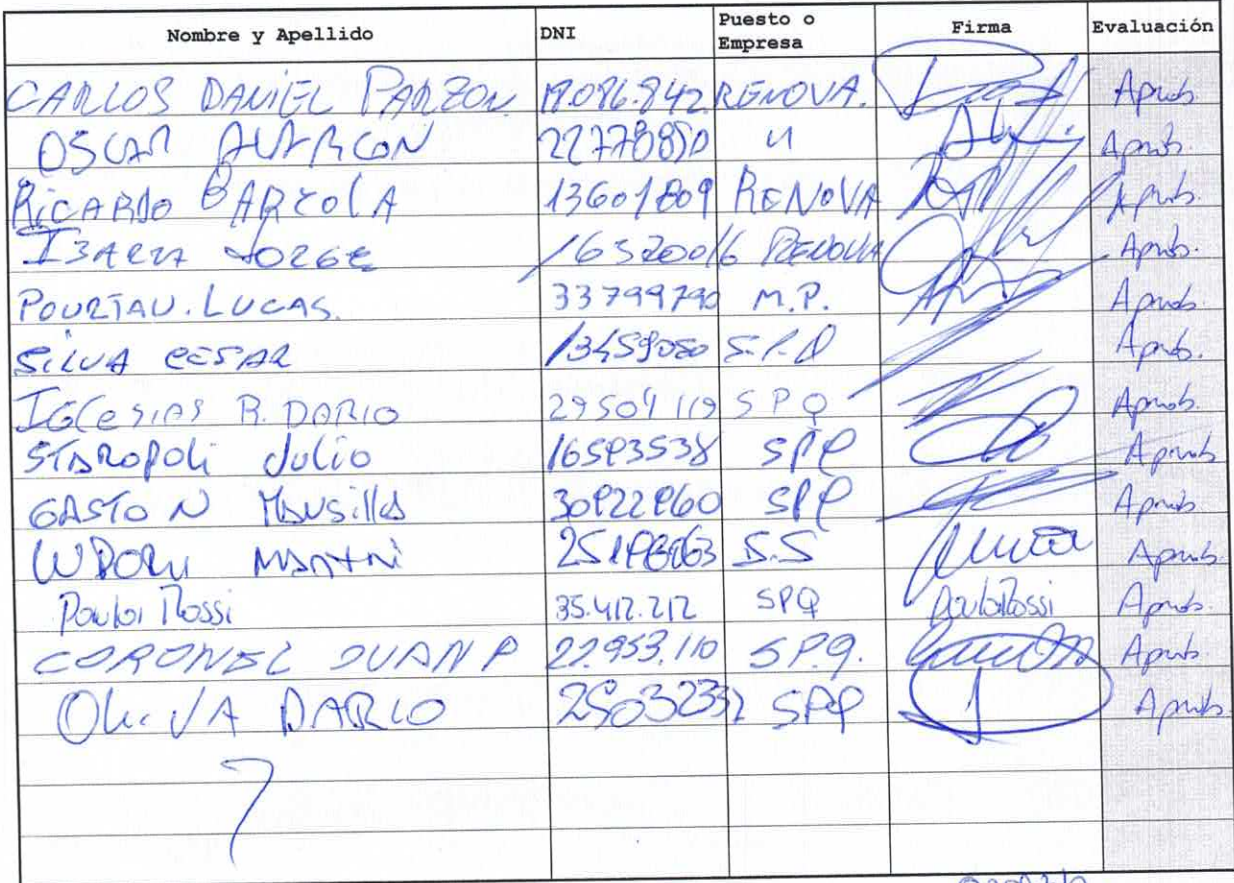 Nombre y Apellido DNI Puesto o Empresa Firma Evaluación
CARLOS DANIEL PARZON RENOVA. Aprob.
OSCAR ALARCON 22778850 " Aprob.
RICARDO BARZOLA 13601809 RENOVA Aprob.
JORGE 16520016 RENOVA Aprob.
POURTAU. LUCAS. 33799790 M.P. Aprob.
SILVA CESAR 13459050 Aprob.
IGLESIAS R. DARIO 29504119 SPQ Aprob.
STAROPOLI Julio 16593538 SPQ Aprob.
GASTON Mansilla SPQ Aprob.
S.S Aprob.
Paula Rossi 35.417.217 SPQ Paula Rossi Aprob.
CORONEL JUAN P 22.953.110 S.P.Q. Aprob.
OLIVA DARIO SPQ Aprob.